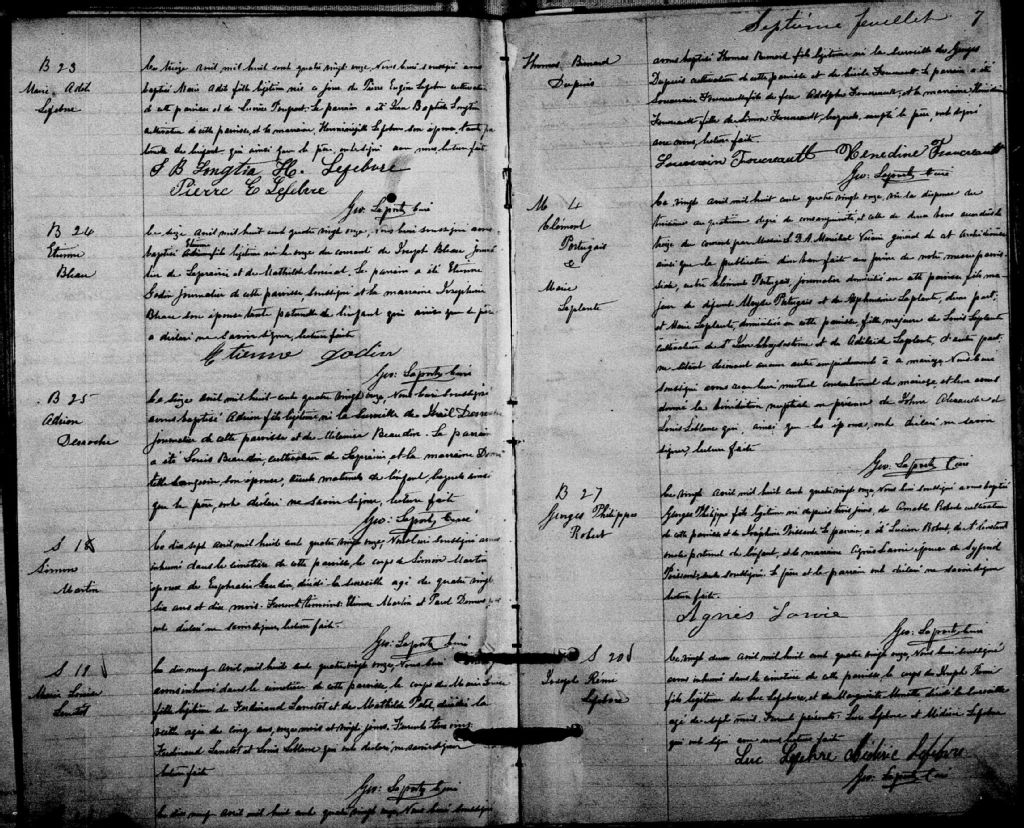 B 23
Marie Adèle
Lefebvre
Le treize avril mil huit cent quatre vingt onze, Nous curé soussigné avons
baptisé Marie Adèle fille légitime née ce jour de Pierre Eugène Lefebvre cultivateur
de cette paroisse et de Le parrain a été Jean Baptiste Longtin
cultivateur de cette paroisse, et la marraine Lefebvre son épouse, tante pa
ternelle de l'enfant qui ainsi que le père, ont signé avec nous, lecture faite
J B Longtin H. Lefebvre
Pierre E Lefebvre
Geo: Laporte Curé
B 24
Etienne
Bleau
Le seize avril mil huit cent quatre vingt onze, Nous curé soussigné avons
Etienne
baptisé fils légitime né le onze du courant de Joseph Bleau journa
lier de Laprairie et de Mathilde Le parrain a été Etienne
Godin journalier de cette paroisse, soussigné et la marraine Josephine
Bleau son épouse tante paternelle de l'enfant qui ainsi que le père
a déclaré ne savoir signer, lecture faite
Etienne Godin
Geo: Laporte Curé
B 25
Adrien
Deroche
Le seize avril mil huit cent quatre vingt onze, Nous Curé soussigné
avons baptisé Adrien fils légitime né la surveille de
journalier de cette paroisse et de Beaudin. Le parrain
a été Louis Beaudin, cultivateur de Laprairie, et la marraine
son épouse, tante maternelle de l'enfant lesquels ainsi
que le père, ont déclaré ne savoir signer, lecture faite
Geo: Laporte Curé
S 18
Simon
Martin
Le dix sept avril mil huit cent quatre vingt onze, Nous curé soussigné avons
inhumé dans le cimetière de cette paroisse, le corps de Simon Martin
époux de Euphrasie décédé la veille agé de quatre vingt
six ans et dix mois. Furent témoins Etienne Martin et Paul
ont déclaré ne savoir signer, lecture faite.
Geo: Laporte Curé
S 19
Marie Louise
Lanctot
Le dix neuf avril mil huit cent quatre vingt onze, Nous curé
avons inhumé dans le cimetière de cette paroisse, le corps de Marie Louise
fille légitime de Ferdinand Lanctot et de Mathilde décédée la
veille agée de cinq ans, onze mois et vingt jours. Furent témoins
Ferdinand Lanctot et Louis Leblanc qui ont déclaré ne savoir signer
lecture faite
Geo: Laporte Curé
Le dix neuf avril mil huit cent quatre vingt onze, Nous curé soussigné
Septième feuillet 7
Thomas Bernard
Dupuis
avons baptisé Thomas Bernard fils légitime né la surveille de Georges
Dupuis cultivateur de cette paroisse et de Foucreault. Le parrain a été
Souverain Foucreault fils de feu Adolphe Foucreault, et la marraine
Foucreault fille de Simon Foucreault, lesquels, excepté le père, ont signé
avec nous, lecture faite.
Souverain Foucreault Henedine Foucreault
Geo: Laporte Curé
M 4
Clément
Portugais
&
Marie
Laplante
Le vingt avril mil huit cent quatre vingt onze, vu la dispense du
troisième au quatrième degré de consanguinité, et celle de deux bans accordée le
treize du courant par Monsieur L. D. A. Maréchal Vicaire général de cet Archidiocèse
ainsi que la publication d'un ban faite au prône de notre messe parois
siale, entre Clément Portugais, journalier domicilié en cette paroisse fils ma
jeur de défunt Moyse Portugais et de Laplante, d'une part;
et Marie Laplante, domiciliée en cette paroisse, fille majeure de Louis Laplante
cultivateur de St Jean Chrysostome et de Adélaide Laplante, d'autre part,
ne s'étant découvert aucun autre empêchement à ce mariage, Nous Curé
soussigné avons reçu leur mutuel consentement de mariage, et leur avons
donné la bénédiction nuptiale en présence de John Alexandre et
Louis Leblanc qui, ainsi que les époux, ont déclaré ne savoir
signer, lecture faite
Geo: Laporte Curé
B 27
Georges Philippe
Robert
Le vingt avril mil huit cent quatre vingt onze, Nous Curé soussigné avons baptisé
Georges Philippe fils légitime né depuis trois jours, de Amable Robert cultivateur
de cette paroisse et de Poissant. Le parrain, a été Lucien Robert, de St Constant
oncle paternel de l'enfant, et la marraine Agnès épouse de
Poissant, soussignée. Le père et le parrain ont déclaré ne savoir signer
lecture faite.
Agnès
Geo: Laporte Curé
S 20
Joseph Rémi
Lefebvre
Le vingt deux avril mil huit cent quatre vingt onze, Nous Curé soussigné
avons inhumé dans le cimetière de cette paroisse, le corps de Joseph Rémi
fils légitime de Luc Lefebvre, et de Marguerite décédé la surveille
agé de sept mois. Furent présents: Luc Lefebvre et Médéric Lefebvre
qui ont signé avec nous lecture faite
Luc Lefebvre Médéric Lefebvre
Geo: Laporte Curé